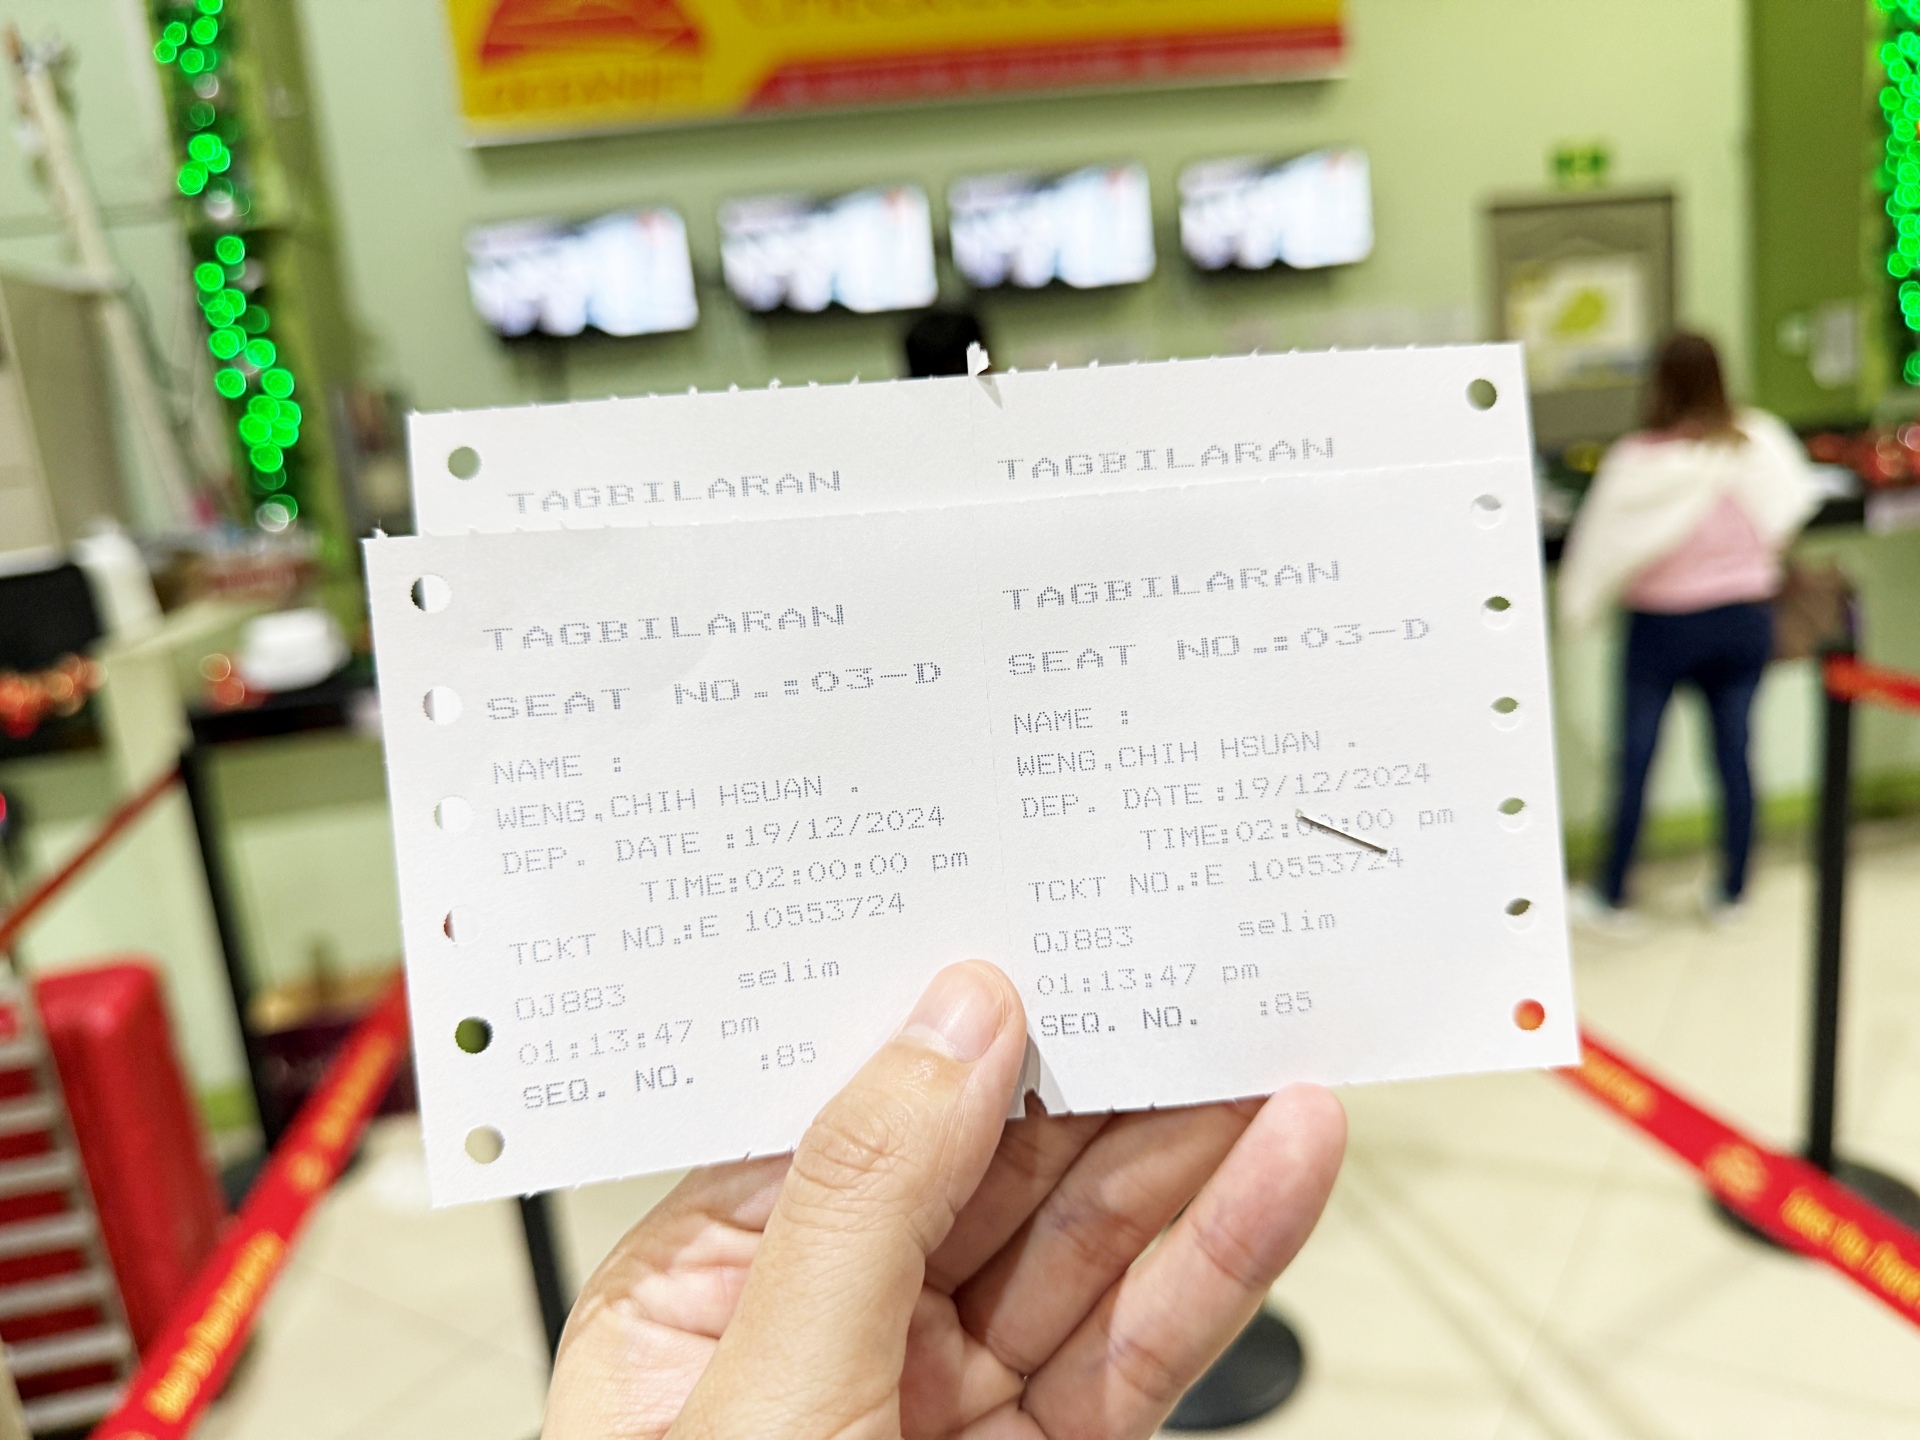 TAGBILARAN
TAGBILARAN
TAGBILARAN
SEAT NO.:03-D
NAME :
WENG,CHIH HSUAN .
DEP. DATE :19/12/2024
TIME:02:00:00 pm
TCKT NO.:E 10553724
OJ883 selim
01:13:47 pm
SEQ. NO. :85
TAGBILARAN
SEAT NO.:03-D
NAME :
WENG,CHIH HSUAN .
DEP. DATE:19/12/2024
TIME:02:00:00 pm
TCKT NO.:E 10553724
OJ883 selim
01:13:47 pm
SEQ. NO. :85